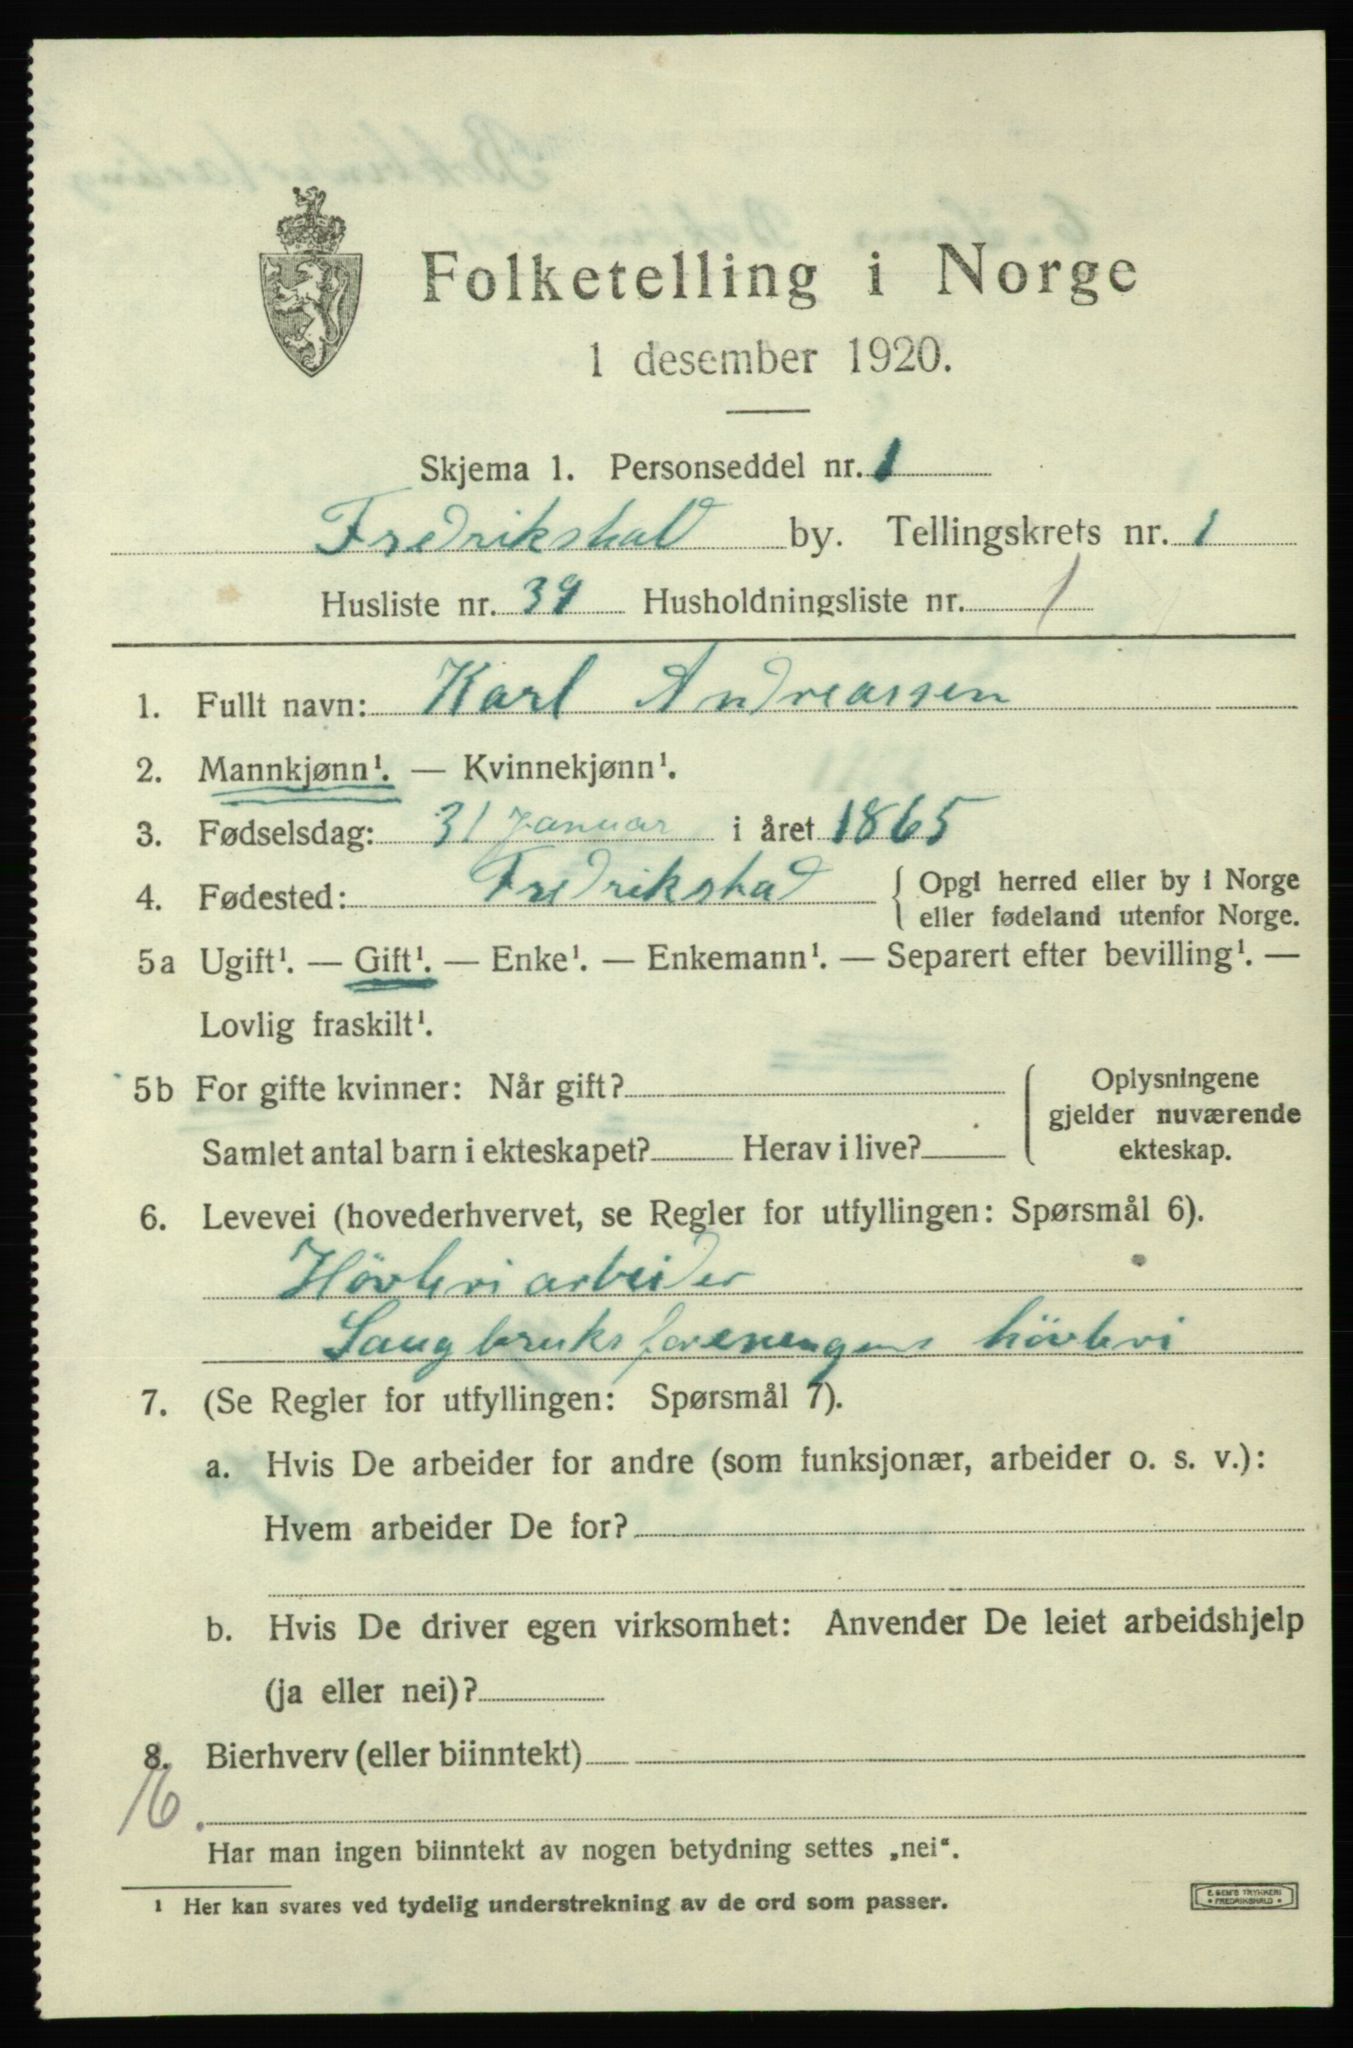 Folketelling i Norge
1 desember 1920.
Skjema 1. Personseddel nr. 1
Fredrikshald by. Tellingskrets nr. 1
Husliste nr. 39 Husholdningsliste nr. 1
1. Fullt navn: Karl Andreassen
2. Mannkjønn¹. — Kvinnekjønn¹.
3. Fødselsdag: 31 Januar i året 1865
4. Fødested: Fredrikshald { Opgi herred eller by i Norge
eller fødeland utenfor Norge.
5a Ugift¹. — Gift¹. — Enke¹. — Enkemann¹. — Separert efter bevilling¹. —
Lovlig fraskilt¹.
5b For gifte kvinner: Når gift? { Oplysningene
gjelder nuværende
Samlet antal barn i ekteskapet? Herav i live? ekteskap.
6. Levevei (hovederhvervet, se Regler for utfyllingen: Spørsmål 6).
Hövleriarbeider
Saugbruksforeningens hövleri
7. (Se Regler for utfyllingen: Spørsmål 7).
a. Hvis De arbeider for andre (som funksjonær, arbeider o. s. v.):
Hvem arbeider De for?
b. Hvis De driver egen virksomhet: Anvender De leiet arbeidshjelp
(ja eller nei)?
8. Bierhverv (eller biinntekt)
Har man ingen biinntekt av nogen betydning settes „nei“.
1 Her kan svares ved tydelig understrekning av de ord som passer.
E. SEM'S TRYKKERI
• FREDRIKSHALD •